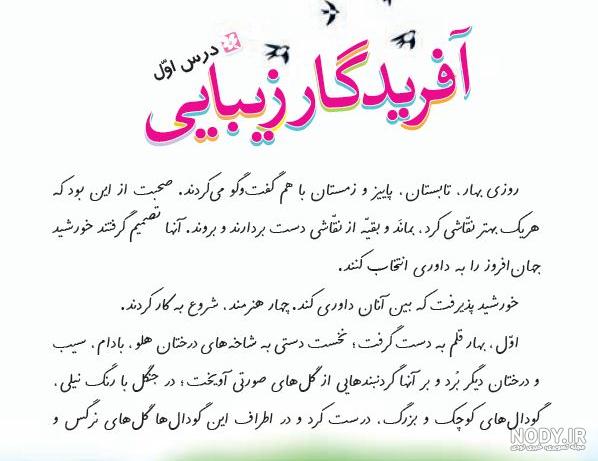 درس اوّل
آفریدگار زیبایی
روزی بهار، تابستان، پاییز و زمستان با هم گفت‌وگو می‌کردند. صحبت از این بود که
هریک بهتر نقّاشی کرد، بماند و بقیّه از نقّاشی دست بردارند و بروند. آنها تصمیم گرفتند خورشید
جهان‌افروز را به داوری انتخاب کنند.
خورشید پذیرفت که بین آنان داوری کند. چهار هنرمند، شروع به کار کردند.
اوّل، بهار قلم به دست گرفت؛ نخست دستی به شاخه‌های درختان هلو، بادام، سیب
و درختان دیگر بُرد و بر آنها گردنبندهایی از گل‌های صورتی آویخت؛ در جنگل با رنگ نیلی،
گودال‌های کوچک و بزرگ، درست کرد و در اطراف این گودال‌ها گل‌های نرگس و
NODY.IR
مجله تصویری، خبری نودی